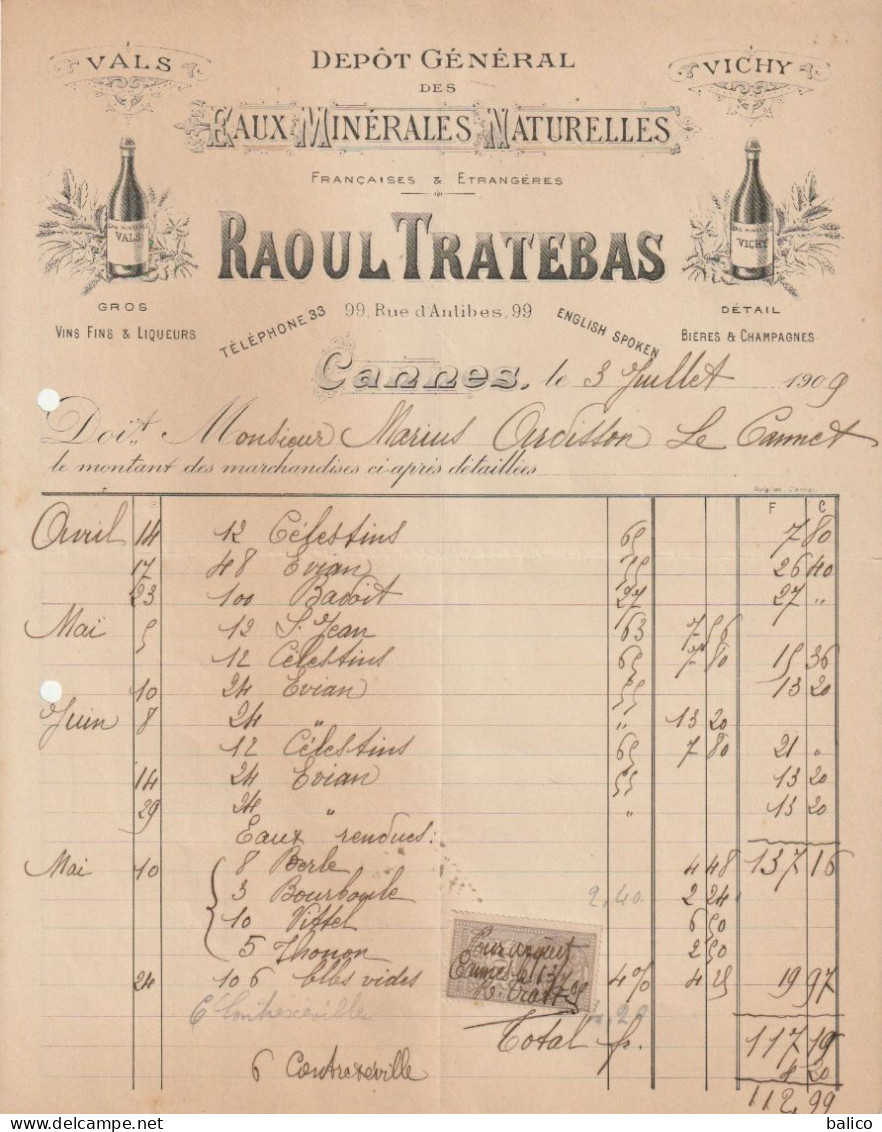 VALS
DEPÔT GÉNÉRAL
VICHY
DES
EAUX MINÉRALES NATURELLES
FRANÇAISES & ETRANGÉRES
VALS
RAOUL TRATEBAS
VICHY
GROS
99, Rue d'Antibes, 99
DÉTAIL
VINS FINS & LIQUEURS
TÉLÉPHONE 33
ENGLISH SPOKEN
BIÈRES & CHAMPAGNES
Cannes, le 3 Juillet 1909
Doit Monsieur Marius Ardisson Le Cannet
le montant des marchandises ci-après détaillées
F C
Avril 14 12 Célestins 65 7 80
17 48 Evian 55 26 40
23 100 Badoit 27 27 "
Mai 5 12 S. Jean 63 7 56
12 Célestins 65 7 80 15 36
10 24 Evian 55 13 20
Juin 8 24 " " 13 20
12 Célestins 65 7 80 21 "
14 24 Evian 55 13 20
29 24 " " 13 20
Eaux rendues: 137 16
Mai 10 8 4 48
3 Bourboule 2.40 2 24
10 Vittel 6 50
5 Thonon 2 50
24 106 blles vides 4% 4 25 19 97
Contrexeville
Pour acquit
Cannes le
Total f. 117 19
6 Contrexeville 4 20
112,99
www.delcampe.net
balico